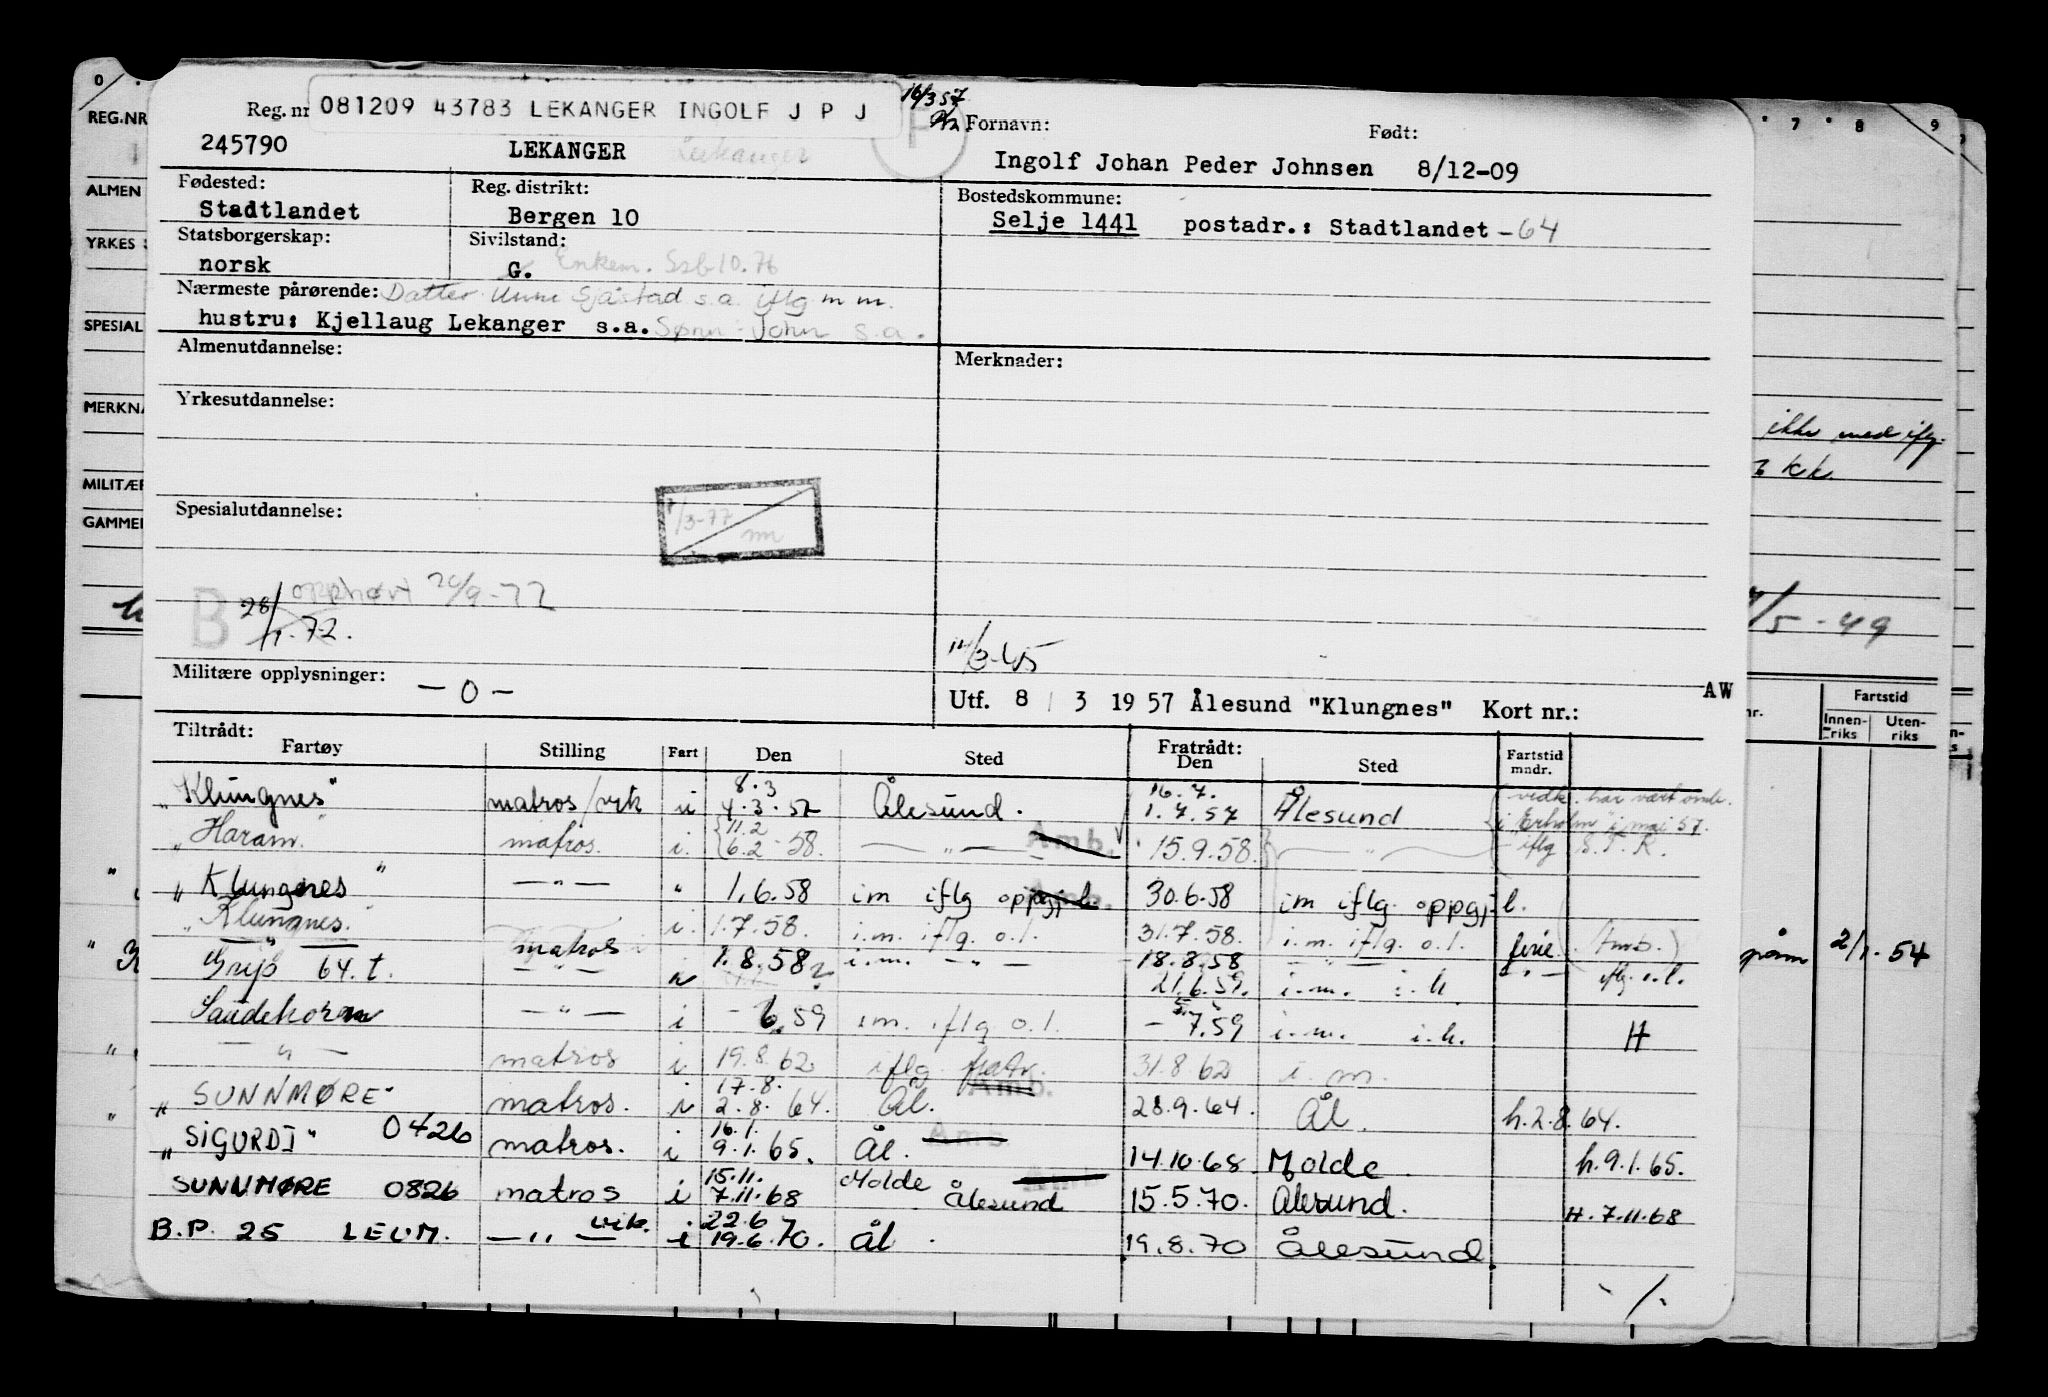 081209 43783 LEKANGER INGOLF J P J
16/3 57
Reg. nr
Fornavn:
Født:
245790
LEKANGER
Lekanger
Ingolf Johan Peder Johnsen 8/12-09
Fødested:
Stadtlandet
Reg. distrikt:
Bergen 10
Bostedskommune:
Selje 1441 postadr.: Stadtlandet -64
Statsborgerskap:
norsk
Sivilstand:
G. Enkem. Ssb 10.76
Nærmeste pårørende: Datter Unni Sjåstad s.a. iflg m m.
hustru: Kjellaug Lekanger s.a. Sønn: John s.a.
Almenutdannelse:
Merknader:
Yrkesutdannelse:
Spesialutdannelse:
/3-77
B 28/1.72.
opphørt 26/9-72
Militære opplysninger: -0-
Utf. 8 / 3 1957 Ålesund "Klungnes" Kort nr.:
AW
Tiltrådt:
Fartøy Stilling Fart Den Sted
Fratrådt:
Den Sted
Fartstid mndr.
"Klungnes" matros/vik i 8.3 4.3.57 Ålesund. 16.7. 1.7.57 Ålesund
vedk. har vært omb. i "Erholm" i mai 57. iflg S.T.K.
"Haram" matros. i. 11.2 6.2-58. — " — Amb. 15.9.58. — " —
"Klungnes" — " — " 1.6.58 im iflg oppgj.l. 30.6.58 im iflg. oppgj.l.
"Klungnes" matros i. 1.7.58. i.m. iflg. o.l. 31.7.58. i.m. iflg. o.l. ferie (Amb.)
— " — — " — 1.8.58 i.m. — " — 18.8.58 — " — — " — iflg. o.l.
64.t. 21.6.59. i.m. i.h.
Sandehorn — " — i - 6.59 i.m. iflg o.l. 5. - 7.59 i.m. i.h. H
— " — matros i 19.8.62 iflg. fratr. 31.8.62 i.m.
"SUNNMØRE" matros. i 17.8. 2.8.64. Ål. Amb. 28.9.64. Ål. h.2.8.64.
"SIGURDJ" 0426 matros. i 16.1. 9.1.65. Ål. Amb. 14.10.68 Molde h.9.1.65.
SUNNMØRE 0826 matros i 15.11. 7.11.68 Molde Ålesund 15.5.70. Ålesund. H.7.11.68
B.P. 25 LEUM. — " — vik. i 22.6 19.6.70. Ål. 19.8.70 Ålesund.
REG.NR
ALMEN
YRKES
SPESIAL
MERKNA
MILITÆR
GAMMEL
0
7 8 9
ikke med iflg.
kk.
/5-49
Fartstid
Innen-riks Uten-riks
2/1-54